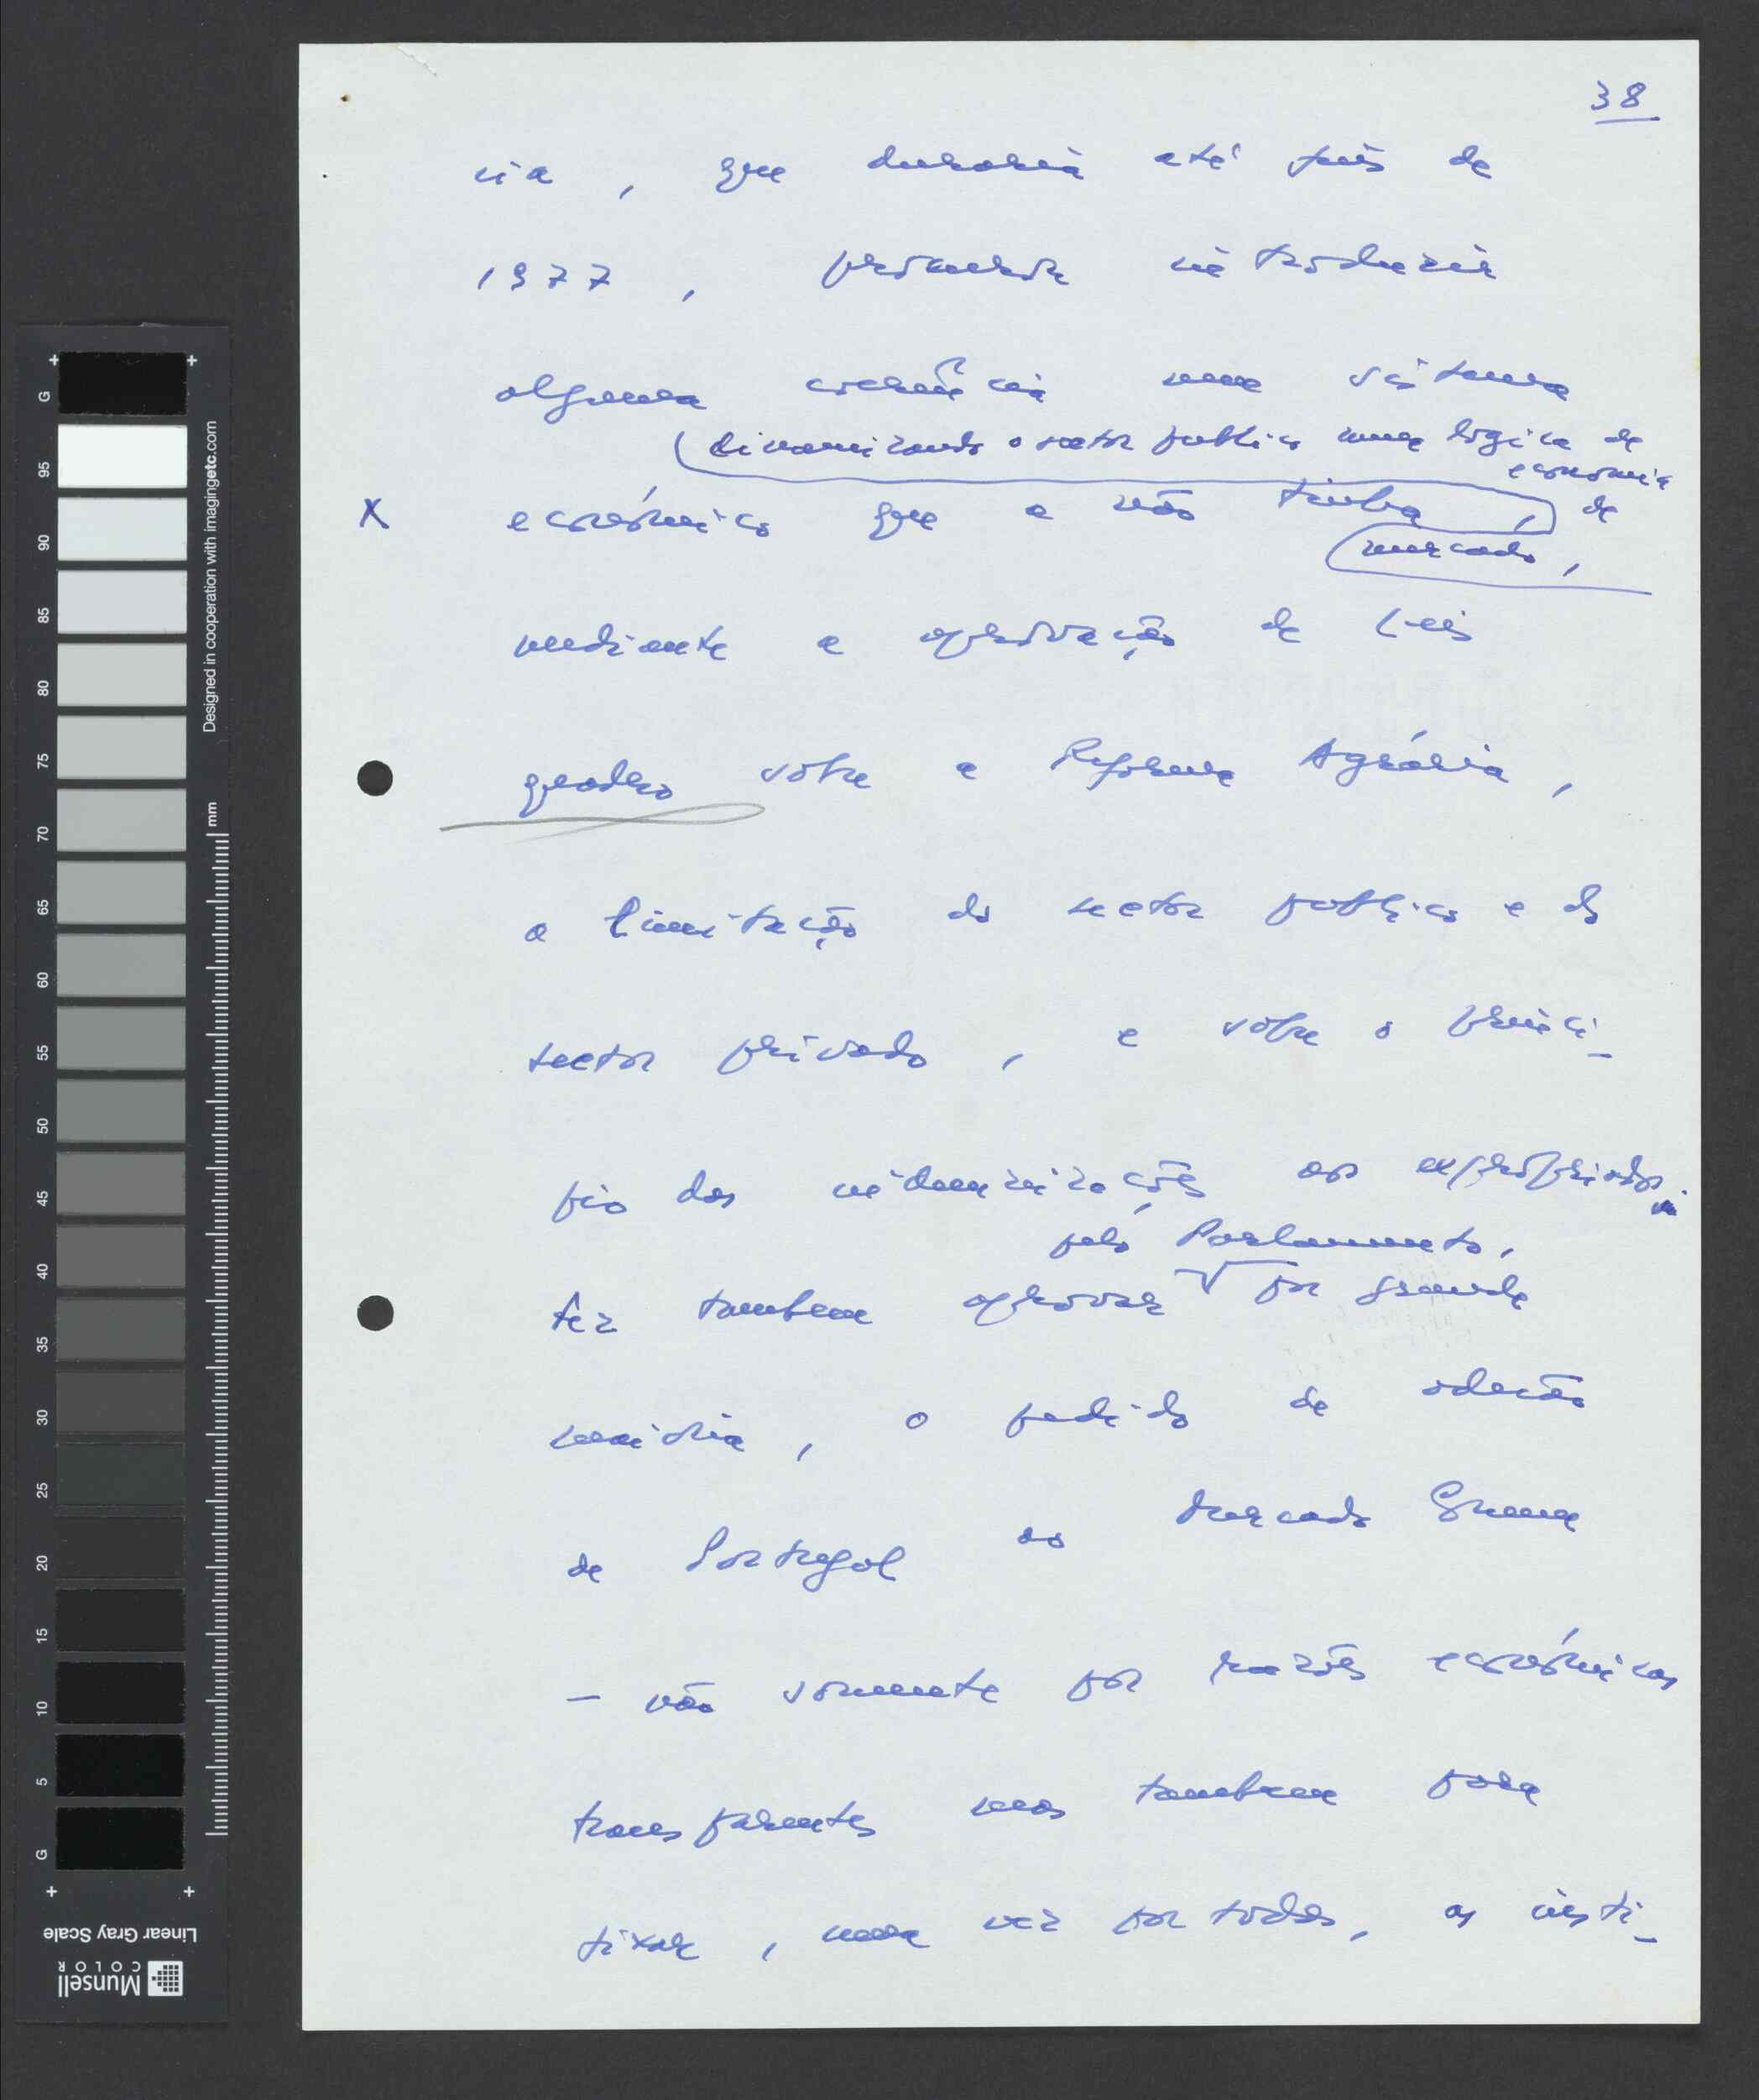 38
ria, que duraria até fins de
1977, procurou introduzir
alguma coerência num sistema
dinamizando o sector publico numa lógica de
economia
X economico que a não tinha, de
mercado,
mediante a aprovação de Leis
quadro sobre a Reforma Agrária,
a limitação do sector publico e do
sector privado, e sobre o princi-
pio das indemnizações aos expropriados.
pelo Parlamento,
fez tambem aprovar por grande
maioria, o pedido de adesão
de Portugal ao Mercado Comum
- não somente por razões económicas
transparentes mas tambem para
fixar, uma vez por todas, as insti-
G
95
90
85
80
75
70
65
60
55
50
45
40
35
30
25
20
15
10
5
G
mm
Designed in cooperation with imagingetc.com
Linear Gray Scale
Munsell
COLOR